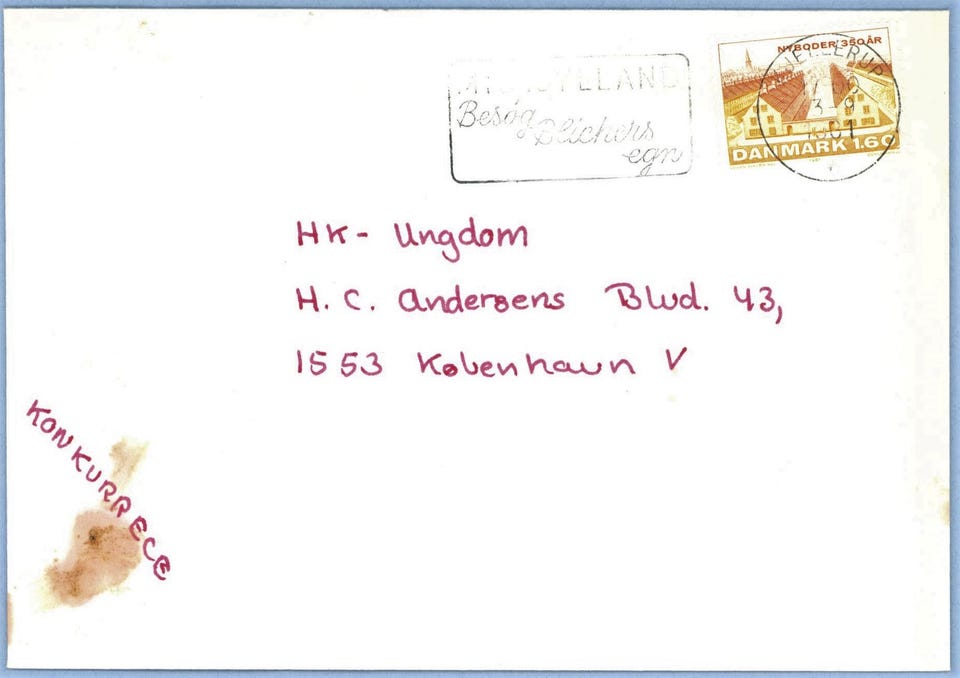 MIDTJYLLAND
Besøg
Blichers
egn
NYBODER 350 ÅR
DANMARK 1.60
KJELLERUP
3-9
1981
HK- Ungdom
H. C. Andersens Blvd. 43,
1553 København V
KONKURRECE